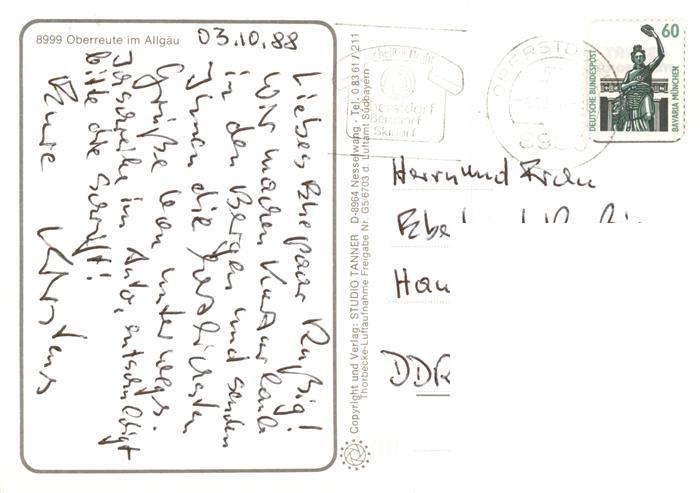 8999 Oberreute im Allgäu
03.10.88
Liebes Ehepaar Rußig!
Wir machen Kurzurlaub
in den Bergen und senden
Ihnen die herzlichsten
Grüße von unterwegs.
Ich schreibe im Auto, entschuldigt
bitte die Schrift!
Eure
Copyright und Verlag: STUDIO TANNER D-8964 Nesselwang · Tel. 0 83 61 / 211
Thorbecke-Luftaufnahme Freigabe Nr. G5/6703 d. Luftamt Südbayern
Oberstdorf
Bergdorf
Skidorf
OBERSTD
DEUTSCHE BUNDESPOST
60
BAVARIA MÜNCHEN
Herrn und Frau
DDR